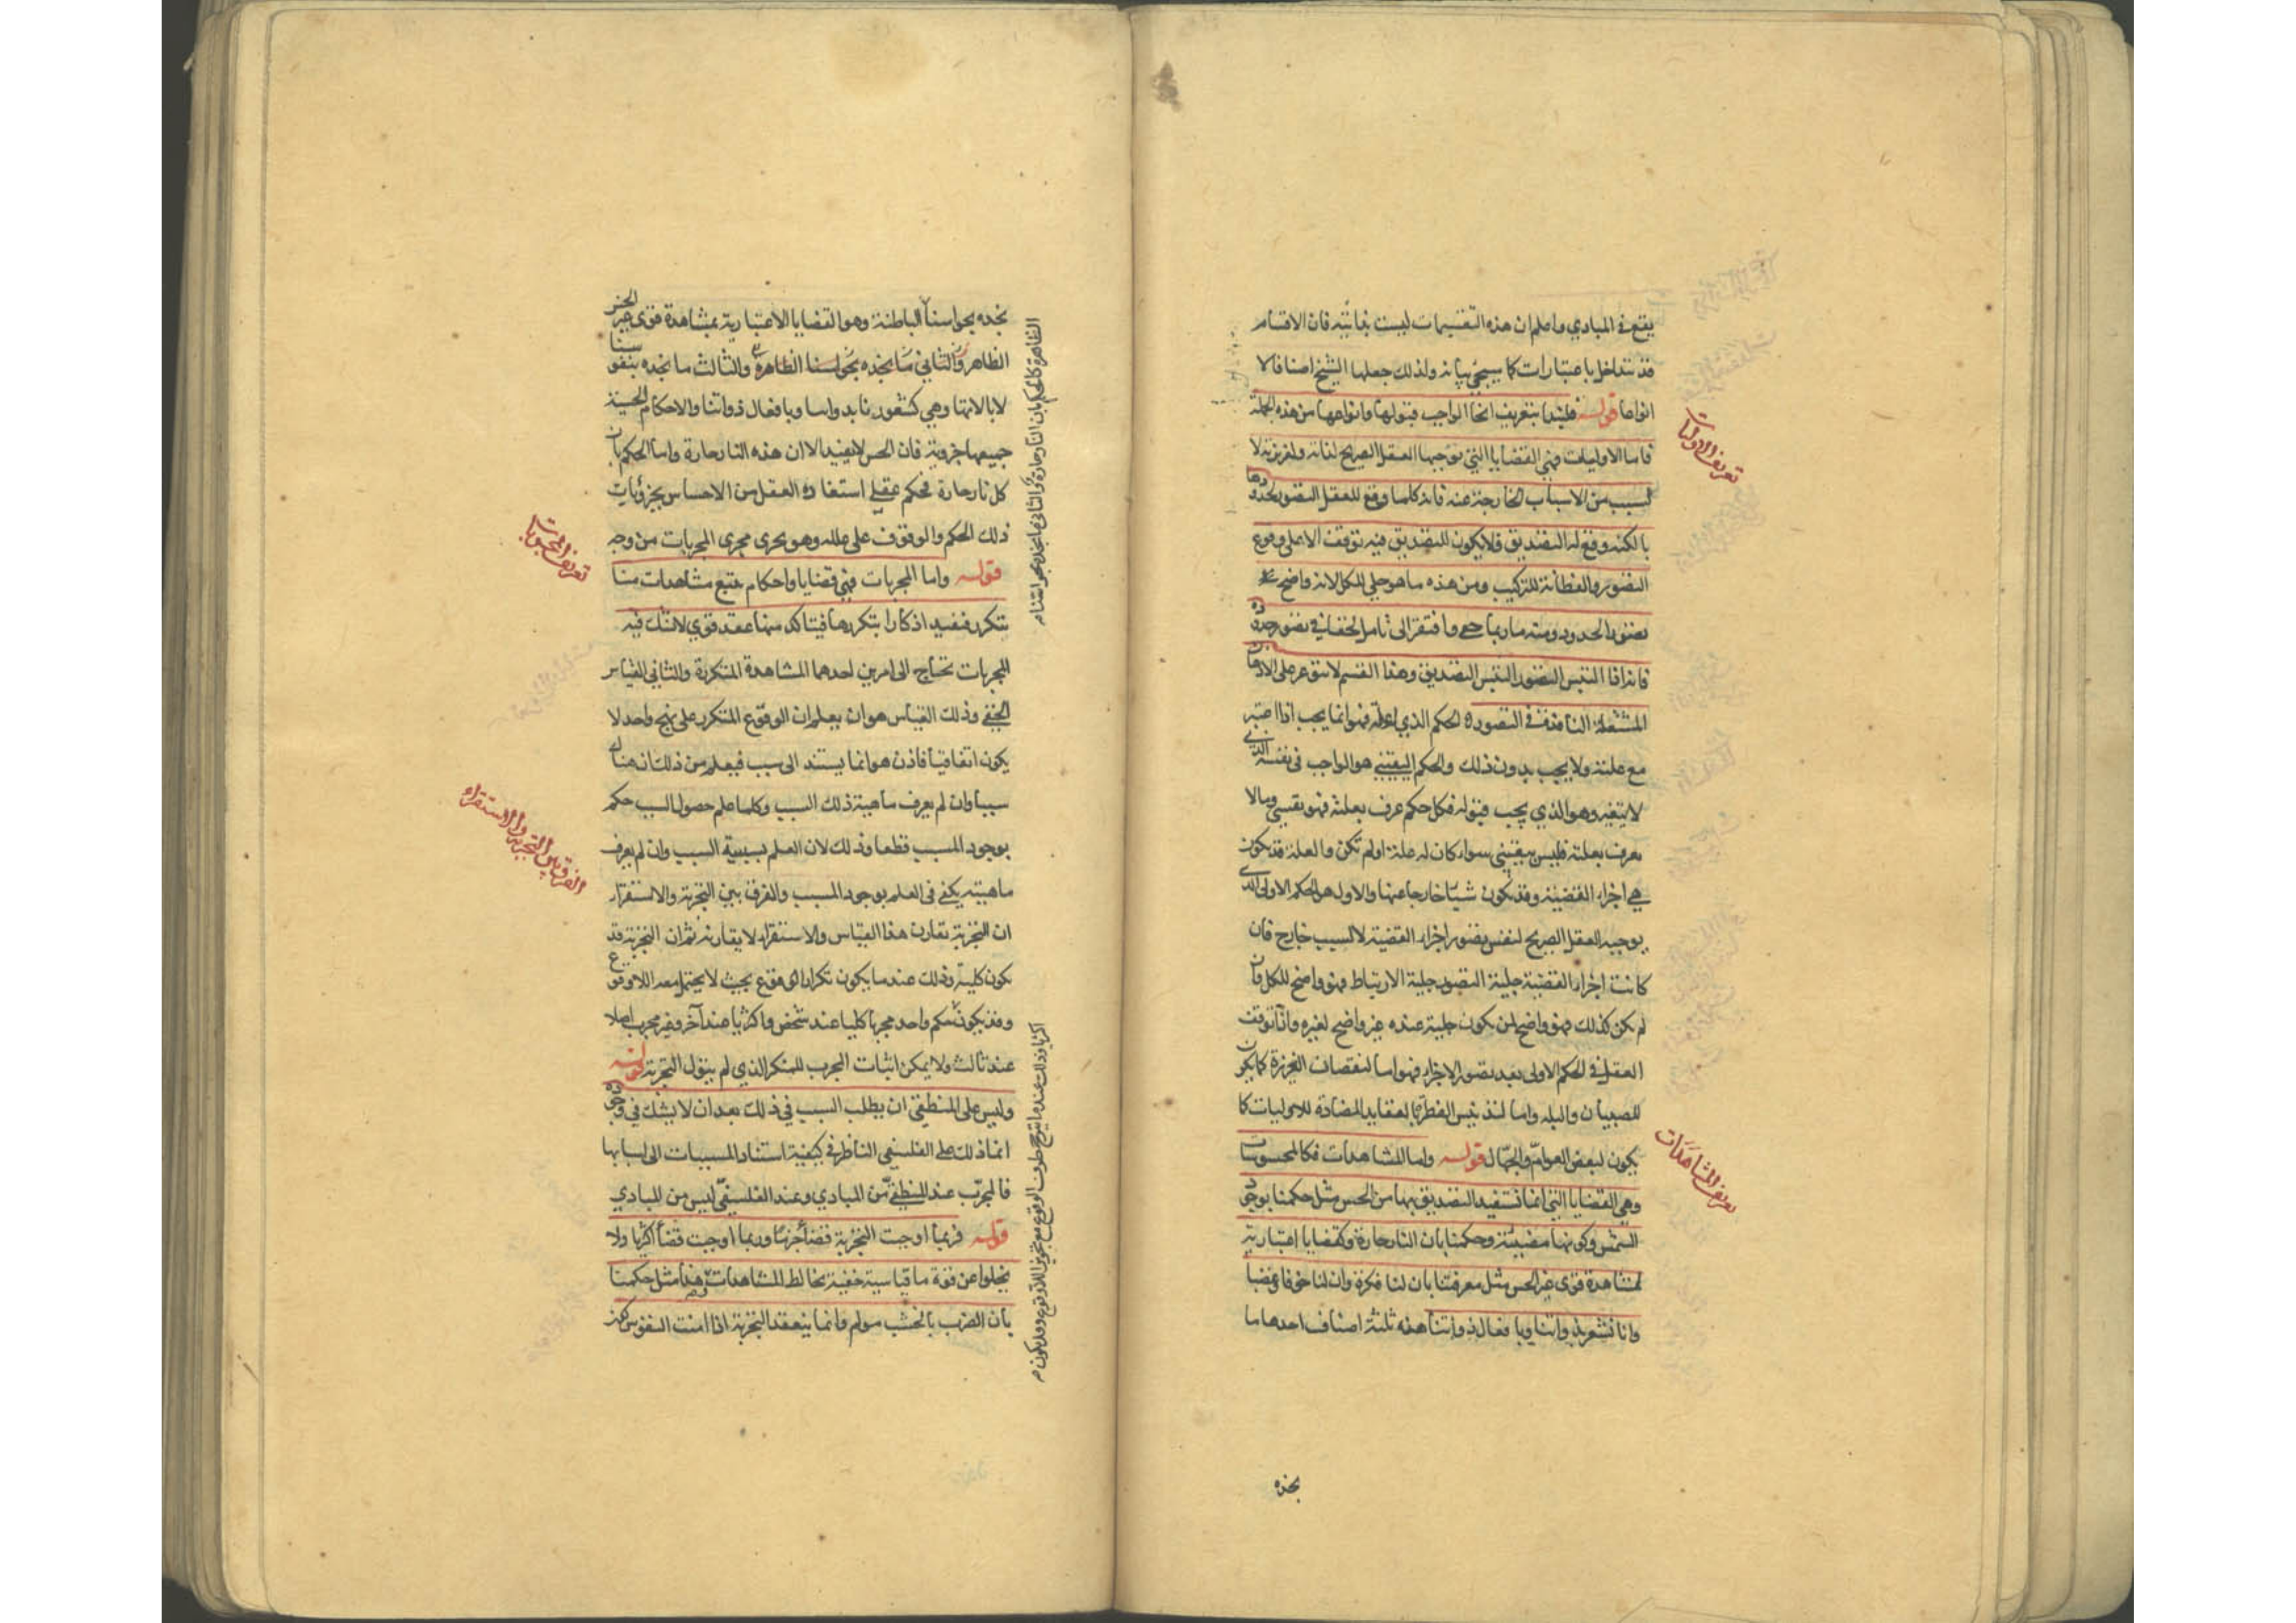 يقع في المبادي واعلم ان هذه التقسيمات ليست بذاتية فان الاقسام
قد تتداخل باعتبارات كما سيجئ بيانه ولذلك جعلها الشيخ اصنافا لا
انواعا قوله فلنبدا بتعريف انحا الواجب قبولها وانواعها من هذه الجملة
فاما الاوليات فهي القضايا التي توجبها العقل الصريح لذاته ولغريزته لا
لسبب من الاسباب الخارجة عنه فانه كلما وقع للعقل التصور لحدودها
بالكنه وقع له التصديق فلا يكون للتصديق فيه توقف الا على وقوع
التصور والفطانة للتركيب ومن هذه ما هو جلي للكل لانه واضح
تصور الحدود ومنه ما ربما خفي وافتقر الى تامل لخفا في تصور حدوده
فانه اذا التبس التصور التبس التصديق وهذا القسم لا يتوعر على الاذهان
المشتعلة النافذة في التصور ه الحكم الذي له علة فهو انما يجب اذا اعتبر
مع علته ولا يجب بدون ذلك والحكم اليقيني هو الواجب في نفسه الذي
لا يتغير وهو الذي يجب قبوله فكل حكم عرف بعلته فهو يقيني وما لا
يعرف بعلته فليس بيقيني سواء كان له علة او لم تكن والعلة قد يكون
هي اجزاء القضية وقد يكون شيئا خارجا عنها والاول هو الحكم الاولي الذي
يوجبه العقل الصريح لنفس تصور اجزاء القضية لا لسبب خارج فان
كانت اجزاء القضية جلية التصور جلية الارتباط فهو واضح للكل وان
لم يكن كذلك فهو واضح لمن يكون جلية عنده غير واضح لغيره واذا توقف
العقل في الحكم الاولى بعد تصور الاجزاء فهو اما لنقصان الغريزة كما يكون
للصبيان والبله واما لتدنيس الفطرة بالعقايد المضادة للاوليات كما
يكون لبعض العوام والجهال قوله واما المشاهدات فكالمحسوسات
وهي القضايا التي انما نستفيد التصديق بها من الحس مثل حكمنا بوجود
الشمس وكونها مضيئة وحكمنا بان النار حارة وكقضايا اعتبارية
لمشاهدة قوى غير الحس مثل معرفتنا بان لنا فكرة وان لنا خوفا وغضبا
وانا نشعر بذواتنا وبافعال ذواتنا هذه ثلثة اصناف احدها ما
نجده
تعريف الاوليات
تعريف المشاهدات
نجده بحواسنا الباطنة وهو القضايا الاعتبارية بمشاهدة قوى غير الحس
الظاهر والثاني ما نجده بحواسنا الظاهرة والثالث ما نجده بنفوسنا
لا بالاتها وهي كشعورنا بذواتنا وبافعال ذواتنا والاحكام الحسية
جميعها جزوية فان الحس لا يفيد الا ان هذه النار حارة واما الحكم بان
كل نار حارة فحكم عقلي استفاده العقل من الاحساس بجزؤيات
ذلك الحكم والوقوف على علله وهو يجري مجرى المجربات من وجه
قوله واما المجربات فهي قضايا واحكام يتبع مشاهدات منا
تتكرر فتفيد اذكارا بتكررها فيتاكد منها عقد قوي لا شك فيه
المجربات تحتاج الى امرين احدهما المشاهدة المتكررة والثاني القياس
الخفي وذلك القياس هو ان يعلم ان الوقوع المتكرر على نهج واحد لا
يكون اتفاقيا فاذن هو انما يستند الى سبب فيعلم من ذلك ان هناك
سببا وان لم يعرف ماهية ذلك السبب وكلما علم حصول السبب حكم
بوجود المسبب قطعا وذلك لان العلم بسببية السبب وان لم يعرف
ماهيته يكفي في العلم بوجود المسبب والفرق بين التجربة والاستقراء
ان التجربة تقارن هذا القياس والاستقراء لا يقارنه ثم ان التجربة قد
يكون كلية وذلك عند ما يكون تكرار الوقوع بحيث لا يحتمل معه اللاوقوع
وقد يكون حكم واحد مجربا كليا عند شخص واكثريا عند آخر وغير مجرب اصلا
عند ثالث ولا يمكن اثبات المجرب للمنكر الذي لم يتول التجربة قوله
وليس على المنطقي ان يطلب السبب في ذلك بعد ان لا يشك في وجوده
انما ذلك على الفلسفي الناظر في كيفية استناد المسببات الى اسبابها
فالمجرب عند المنطقي من المبادي وعند الفلسفي ليس من المبادي
قوله فربما اوجبت التجربة قضاء جزئيا وربما اوجبت قضاء اكثريا ولا
يخلوا عن قوة ما قياسية خفية تخالط المشاهدات وهذا مثل حكمنا
بان الضرب بالخشب مولم وانما ينعقد التجربة اذا امنت النفوس كون
الظاهرة كالحكم بان النار حارة والثاني ما نجده بحواسنا م
اكثريا وذلك عند ما يترجح طرف الوقوع مع تجويز اللاوقوع وقد يكون م
تعريف المجربات
الفرق بين التجربة والاستقراء